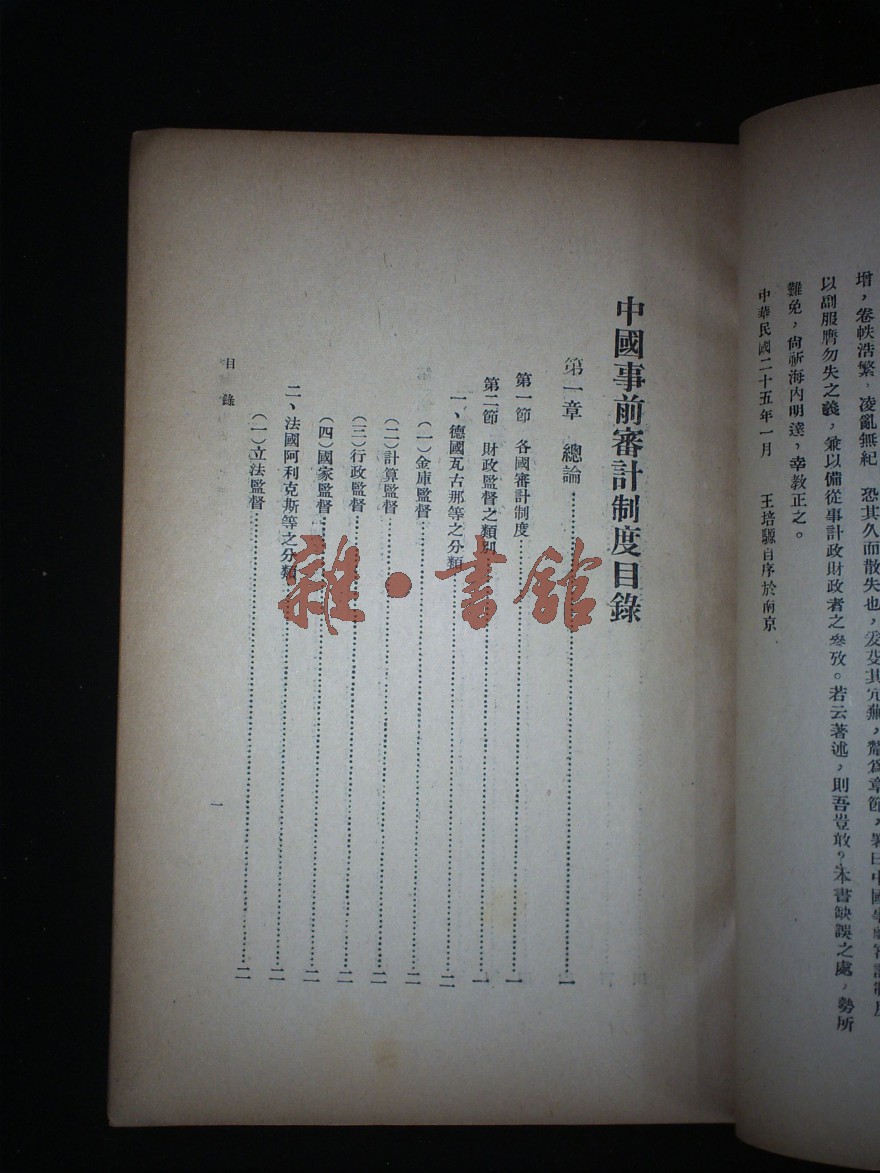 增，卷帙浩繁，凌亂無紀　恐其久而散失也，爰芟其冗蕪，釐爲章節，署曰中國事前審計制度
以副服膺勿失之義，兼以備從事計政財政者之參攷。若云著述，則吾豈敢？本書缺誤之處，勢所
難免，尙祈海内明達，幸教正之。
中華民國二十五年一月　王培騄自序於南京
中國事前審計制度目錄
第一章　總論…………一
第一節　各國審計制度…………一
第二節　財政監督之類別…………一
一、德國瓦古那等之分類…………二
（一）金庫監督…………二
（二）計算監督…………二
（三）行政監督…………二
（四）國家監督…………二
二、法國阿利克斯等之分類…………二
（一）立法監督…………二
目錄
一
雜·書館